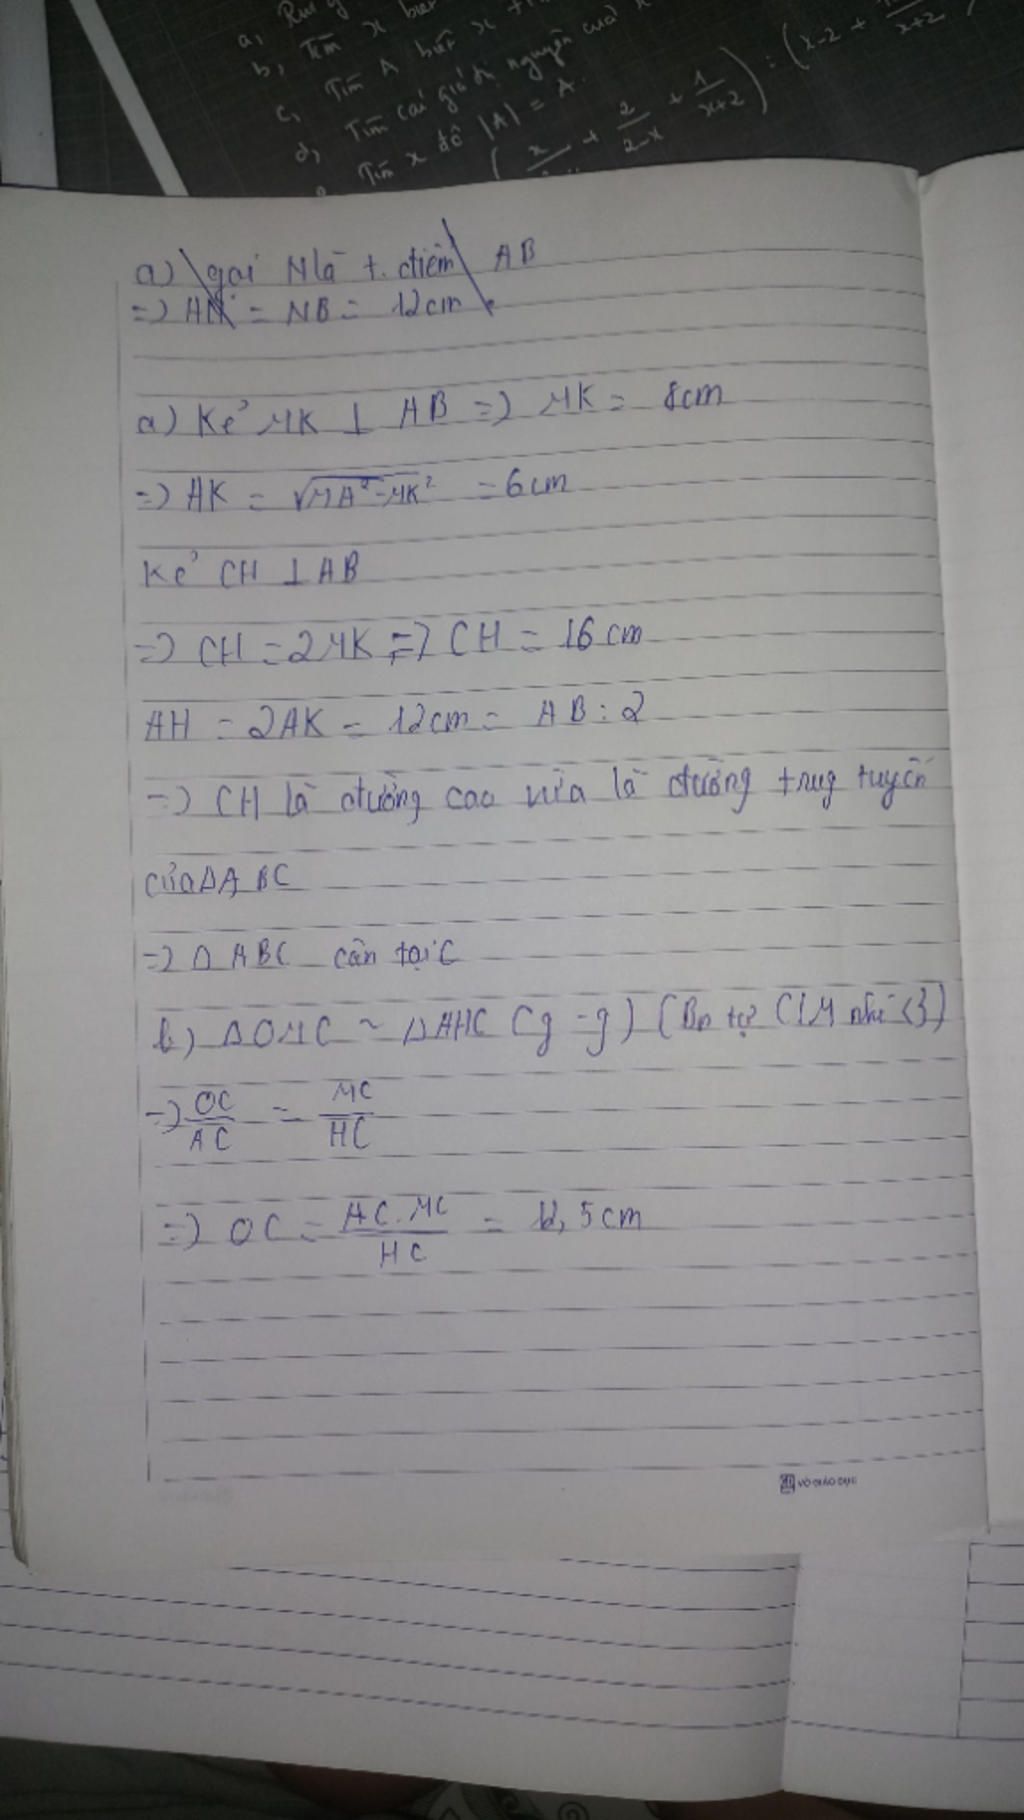 a, Rút g
b, Tìm x biết
c, Tìm A biết x +
d, Tìm các giá trị nguyên của x
Tìm x để |A| = A.
( x/ + 2/2-x + 1/x+2 ) : ( x-2 + /x+2
a) gọi N là t. điểm AB
=> AN = NB = 12cm
a) Kẻ MK ⊥ AB => MK = 8cm
=> AK = √MA²-MK² = 6cm
Kẻ CH ⊥ AB
=> CH = 2MK => CH = 16 cm
AH = 2AK = 12cm = AB : 2
=> CH là đường cao vừa là đường trug tuyến
của Δ ABC
=> Δ ABC cân tại C
b) Δ OMC ~ Δ AHC (g-g) (Bn tự C/M nhé <3)
=> OC/AC = MC/HC
=> OC = AC.MC/HC = 12,5cm
VỞ GIÁO DỤC